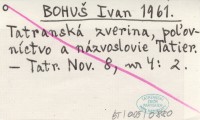 BOHUŠ Ivan 1961.
Tatranská zverina, poľov-
níctvo a názvoslovie Tatier.
– Tatr. Nov. 8, nr 4: 2.